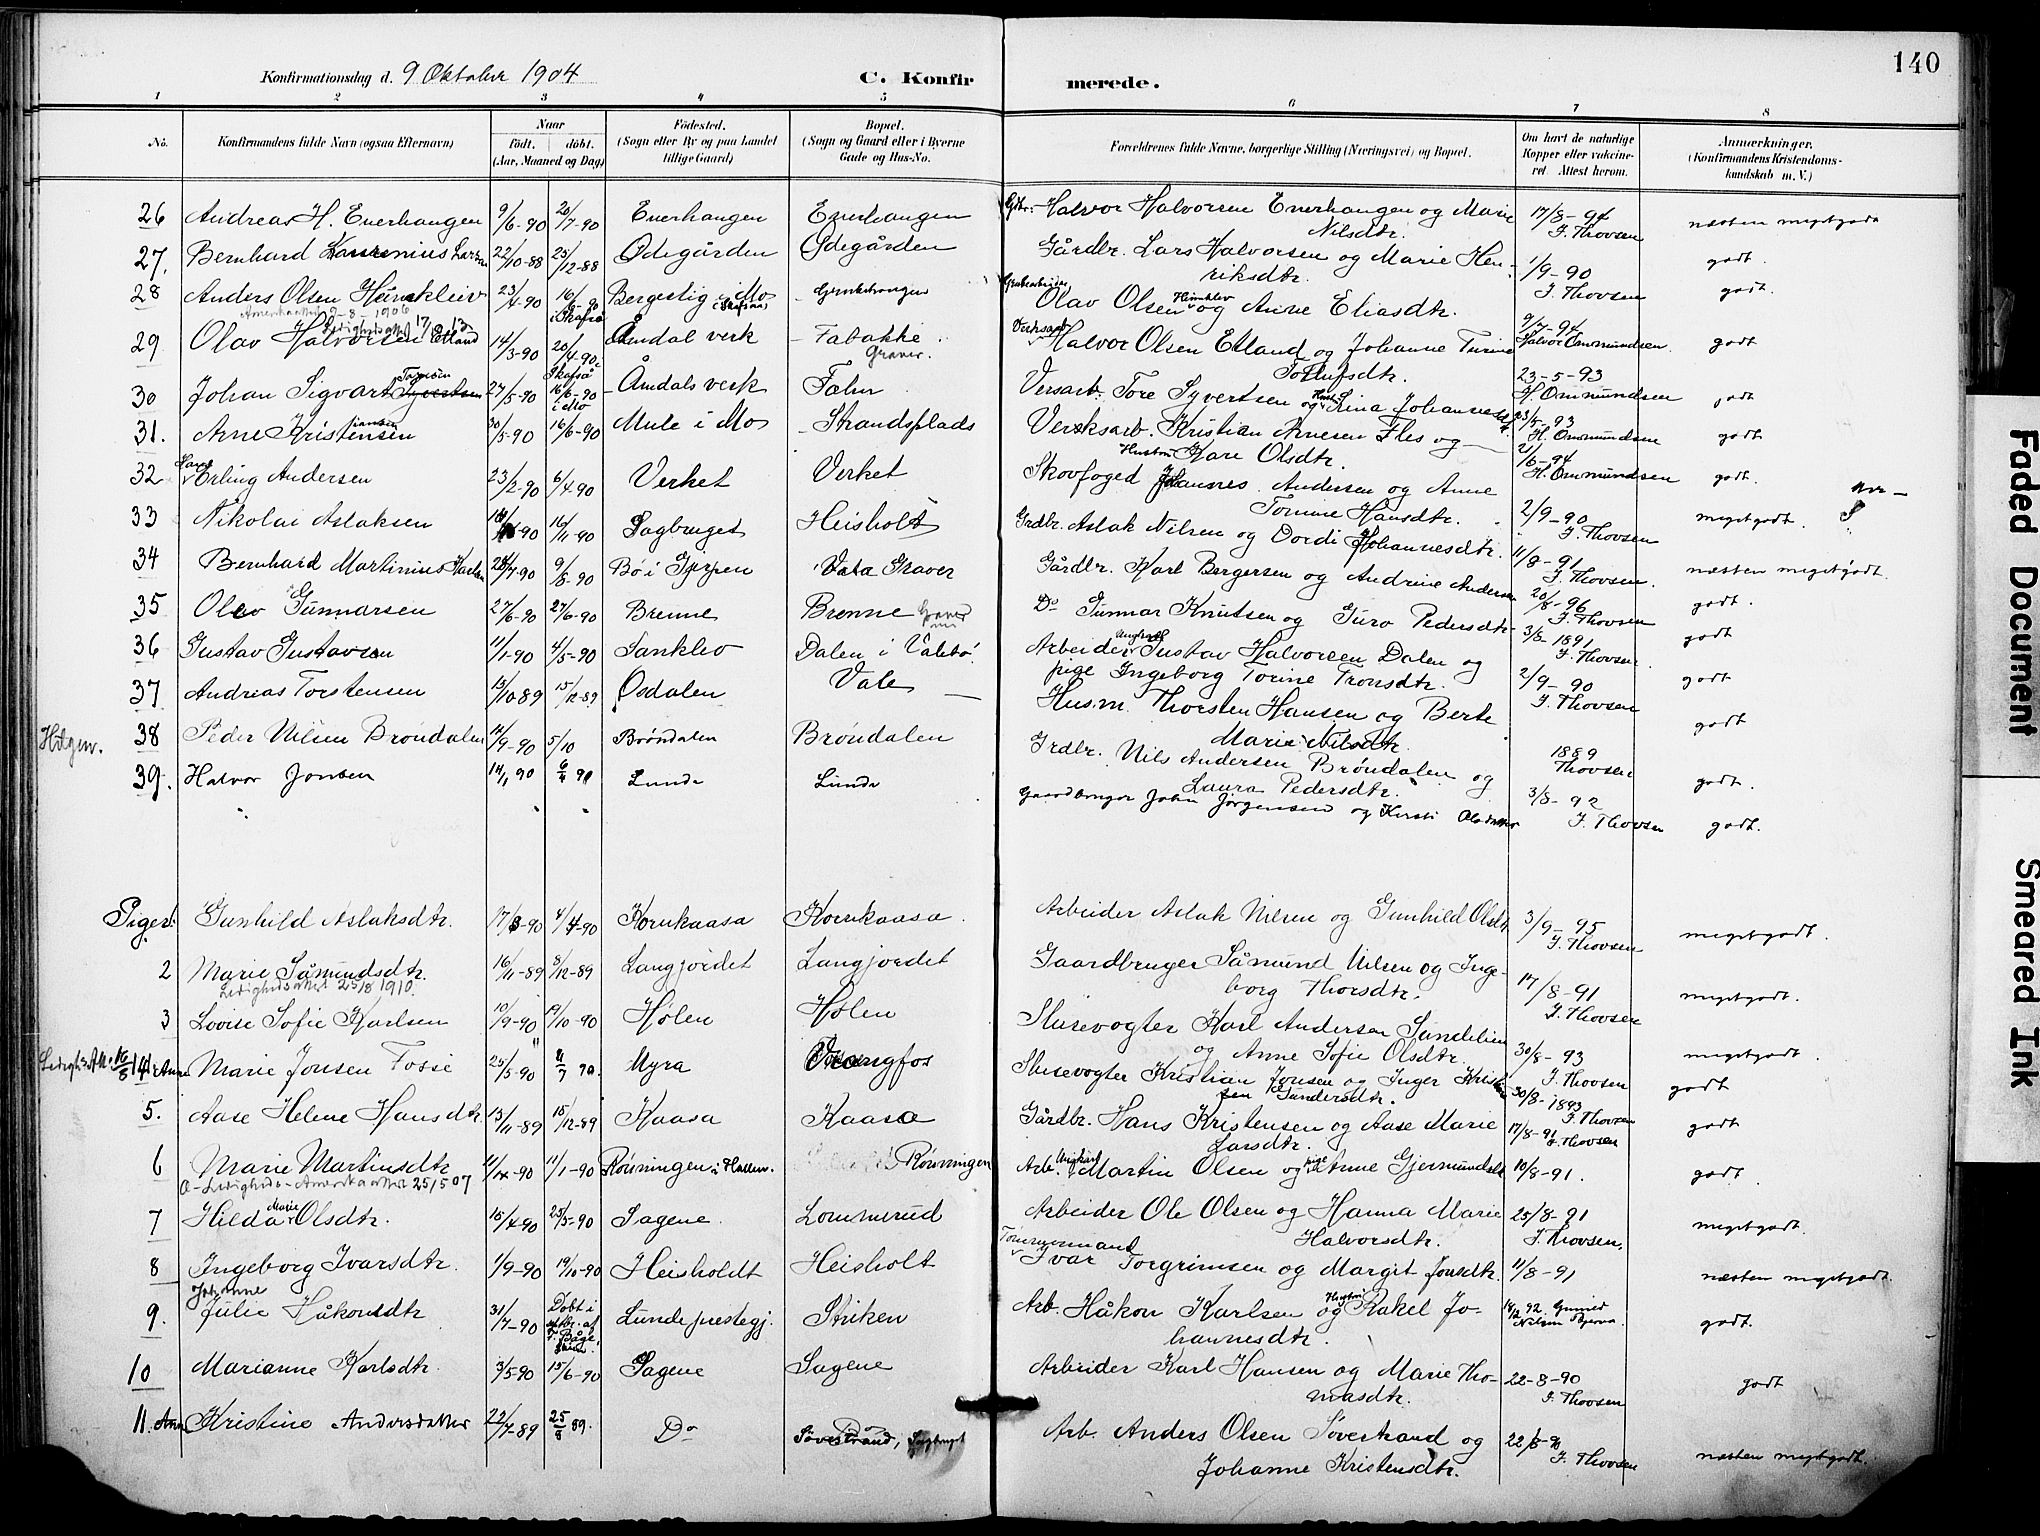 140
Konfirmationsdag d. 9 Oktober 1904
C. Konfirmerede.
1 2 3 4 5 6 7 8
No.
Konfirmandens fulde Navn (ogsaa Efternavn)
Naar
født. døbt.
(Aar, Maaned og Dag)
Fødested.
(Sogn eller By og paa Landet
tillige Gaard)
Bopæl.
(Sogn og Gaard eller i Byerne
Gade og Hus-No.
Forældrenes fulde Navne, borgerlige Stilling (Næringsvei) og Bopæl.
Om havt de naturlige
Kopper eller vakcine-
ret. Attest herom.
Anmærkninger.
(Konfirmandens Kristendoms-
kundskab m. V.)
26 Andreas H. Enerhaugen 9/6-90 20/7-90 Enerhaugen Enerhaugen Gdbr. Halvor Halvorsen Enerhaugen og Marie Nilsdtr. 17/8-94 J. Thovsen næsten megetgodt
27. Bernhard Laurenius Larsen 22/10-88 25/12-88 Ødegården Ødegården Gårdbr. Lars Halvorsen og Marie Henriksdtr. 1/9-90 J. Thovsen godt.
28 Anders Olsen Heimkleiv 23/4-90 16/6-90 i Skafså Bergestig i Mo (i Skafsaa) Grubehaugen Grubearbeider Olav Olsen Heimklev og Anne Eliasdtr. godt.
Amerikaattest 9-8-1906
29 Olav Halvorsen Etland 14/3-90 20/4-90 Skafså Åmdal verk Fabakke Graver. Verksarb. Halvor Olsen Etland og Johanne Turine Tollufsdtr. 9/7-94 Halvor Ommundsen godt
30 Johan Sigvart Toresen Syvertsen 27/5-90 16/6-90 i Mo Åmdals verk Versarb. Tore Syvertsen og Hustru Sina Johannesdt. 23-5-93 H. Ommundsen godt
31. Arne Kristensen 30/5-90 16/6-90 Mule i Mo Strandsplads Verksarb. Kristian Arnesen Fles og Hustru Kare Olsdtr. H. Ommundsen godt
32 Erling Andersen 23/2-90 6/4-90 Verket Verket Skovfoged Johannes Andersen og Anne Tomine Hansdtr. H. Ommundsen godt.
33 Nikolai Aslaksen 16/11-90 Sagbruget Heisholt Grdbr. Aslak Nilsen og Dordi Johannesdtr. 2/9-90 J. Thovsen megetgodt.
34 Bernhard Martinius Karlsen 9/8-90 Bø i Gjerpen Vala Graver Gårdbr. Karl Bergersen og Andrine Andersen 11/8-91 J. Thovsen. næsten megetgodt.
35 Olav Gunnarsen 27/6-90 27/6-90 Brenne Brenne Graver Do Gunnar Knutsen og Guro Pedersdtr 20/8-96 J. Thovsen godt.
36 Gustav Gustavsen 11/1-90 4/5-90 Sanklev Dalen i Valebø. Arbeider Ungkarl Gustav Halvorsen Dalen og pige Ingeborg Torine Tronsdtr. 3/8-1891 J. Thovsen. godt
37 Andreas Torstensen 13/10-89 15/12-89 Oodalen Vale Hus.m. Thorsten Hansen og Berte Marie Nilsdtr. 2/9-90 J. Thovsen godt
38 Peder Nilsen Brøndalen 11/9-90 5/10 Brøndalen Brøndalen Grdbr. Nils Andersen Brøndalen og Laura Pedersdtr. 1889 Thovsen godt
39. Halvor Jonsen 14/1 90 6/4 90 Lunde Lunde Gaardbruger John Jørgensen og Kirsti Olsdatter 3/8-92 J. Thovsen godt.
Piger:
Gunhild Aslaksdtr. 17/3-90 4/4-90 Kornkaasa Kornkaasa Arbeider Aslak Nilsen og Gunhild Olsdtr 3/9-95 J. Thovsen megetgodt.
2 Marie Såmundsdtr. 16/11-89 8/12-89 Langjordet Langjordet Gaardbruger Såmund Nilsen og Ingeborg Thorsdtr. 17/8-91 J. Thovsen megetgodt.
Ledighedsattest 25/8 1910.
3 Lovise Sofie Karlsen 10/9-90 19/10-90 Hølen Hølen Slusevogter Karl Andersen Sundelien og Anne Sofie Olsdtr. 30/8-93 J. Thovsen megetgodt.
Marie Jonsen Fosse 25/5-90 Myra Vrangfos Slusevogter Kristian Jonsen og Inger Kristine Gundersdtr. 30/8-1893 J. Thovsen godt
5. Aase Helene Hansdtr. 13/11-89 15/12-89 Kaasa Kaasa Gårdbr. Hans Kristensen og Aase Marie Larsdtr. 17/8-91 J. Thovsen godt
6 Marie Martinsdtr 11/1-90 Rønningen i Hollen. Rønningen Arb. Ungkarl Martin Olsen og pige Anne Gjermundsdt 10/8-91. godt.
Ledigheds-Amerikaattest 25/5 07
7 Hilda Marie Olsdtr. 15/4-90 25/5-90 Sagene. Lommerud Arbeider Ole Olsen og Hanna Marie Halvorsdtr. 25/8-91 J. Thovsen. megetgodt.
8 Ingeborg Ivarsdtr. 1/9-90 19/10-90 Heisholdt Heisholt Tømmermand Ivar Torgrimsen og Margit Jonsdtr. 11/8-91 næsten megetgodt.
9. Julie Johanne Håkonsdtr 31/7-90 Døbt i Lunde prestegj. Striken Arb. Håkon Karlsen og Hustru Rakel Johannesdtr. godt.
10 Marianne Karlsdtr. 3/5-90 15/6-90 Sagene Sagene Arbeider Karl Hansen og Marie Thomasdtr. 22-8-90 J. Thovsen godt
11. Kristine Andersdatter 22/7-89 25/8 89. Do Søvestrand, Sagbruget Arb. Anders Olsen Søvestrand og Johanne Kristensdtr. 22/8-90 J. Thovsen næsten megetgodt.
Faded Document
Smeared Ink